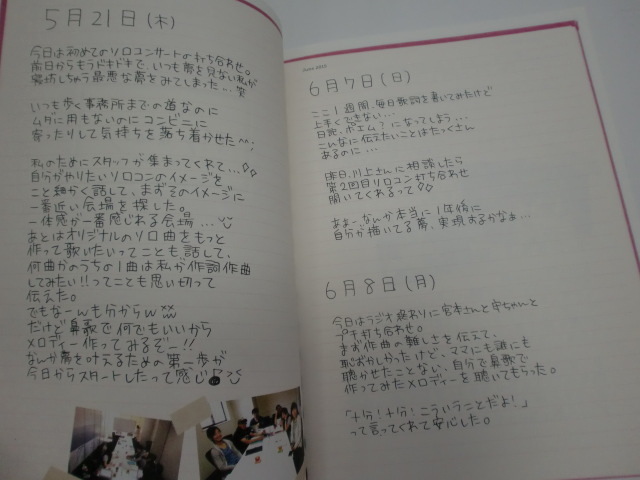 5月21日(木)
今日は初めてのソロコンサートの打ち合わせ。
前日からもうドキドキで、いつも夢を見ない私が
寝坊しちゃう最悪な夢をみてしまった…笑
いつも歩く事務所までの道なのに
ムダに用もないのにコンビニに
寄ったりして気持ちを落ち着かせた^^;
私のためにスタッフが集まってくれて…!!
自分がやりたいソロコンのイメージを
こと細かく話して、まずそのイメージに
一番近い会場を探した。
一体感が一番感じれる会場…
あとはオリジナルのソロ曲をもっと
作って歌いたいってことも話して、
何曲かのうちの1曲は私が作詞作曲
してみたい!!ってことも思い切って
伝えた。
でもなーんも分からんw
だけど鼻歌で何でもいいから
メロディー作ってみるぞー!!
なんか夢を叶えるための第一歩が
今日からスタートしたって感じ
June 2015
6月7日(日)
ここ1週間、毎日歌詞を書いてみたけど
上手くできない…
日記、ポエム?になってしまう…
こんなに伝えたいことはたっくさん
あるのに…
昨日、川上さんに相談したら
第2回目ソロコン打ち合わせ
開いてくれるって!!
あぁーなんか本当に1年後に
自分が描いてる夢、実現するかなぁ…
6月8日(月)
今日はラジオ終わりに宮本さんと安ちゃんと
プチ打ち合わせ。
まず作曲の難しさを伝えて、
恥ずかしかったけど、ママにも誰にも
聴かせたことない、自分で鼻歌で
作ってみたメロディーを聴いてもらった。
「十分!十分!こういうことだよ!」
って言ってくれて安心した。